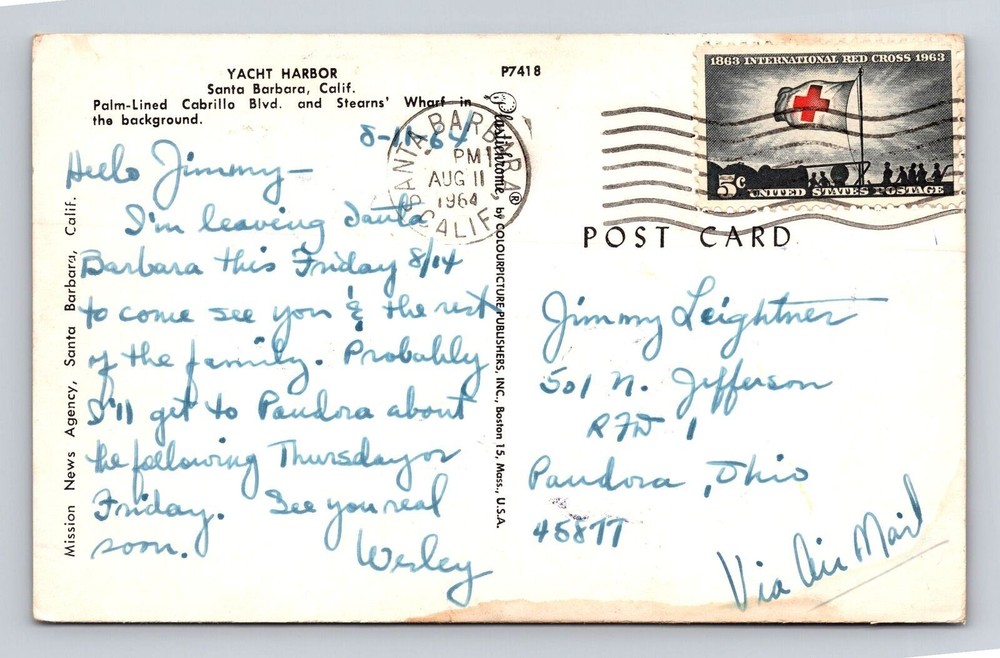 YACHT HARBOR
Santa Barbara, Calif.
Palm-Lined Cabrillo Blvd. and Stearns' Wharf in
the background.
P7418
8-11-64
Hello Jimmy —
I'm leaving Santa
Barbara this Friday 8/14
to come see you & the rest
of the family. Probably
I'll get to Pandora about
the following Thursday or
Friday. See you real
soon. Wesley
Mission News Agency, Santa Barbara, Calif.
Plastichrome, ® by COLOURPICTURE PUBLISHERS, INC., Boston 15, Mass., U.S.A.
SANTA BARBARA
PM
AUG 11
1964
CALIF.
1863 INTERNATIONAL RED CROSS 1963
5c
UNITED STATES POSTAGE
POST CARD
Jimmy Leightner
501 N. Jefferson
RFD 1
Pandora, Ohio
45877
Via Air Mail